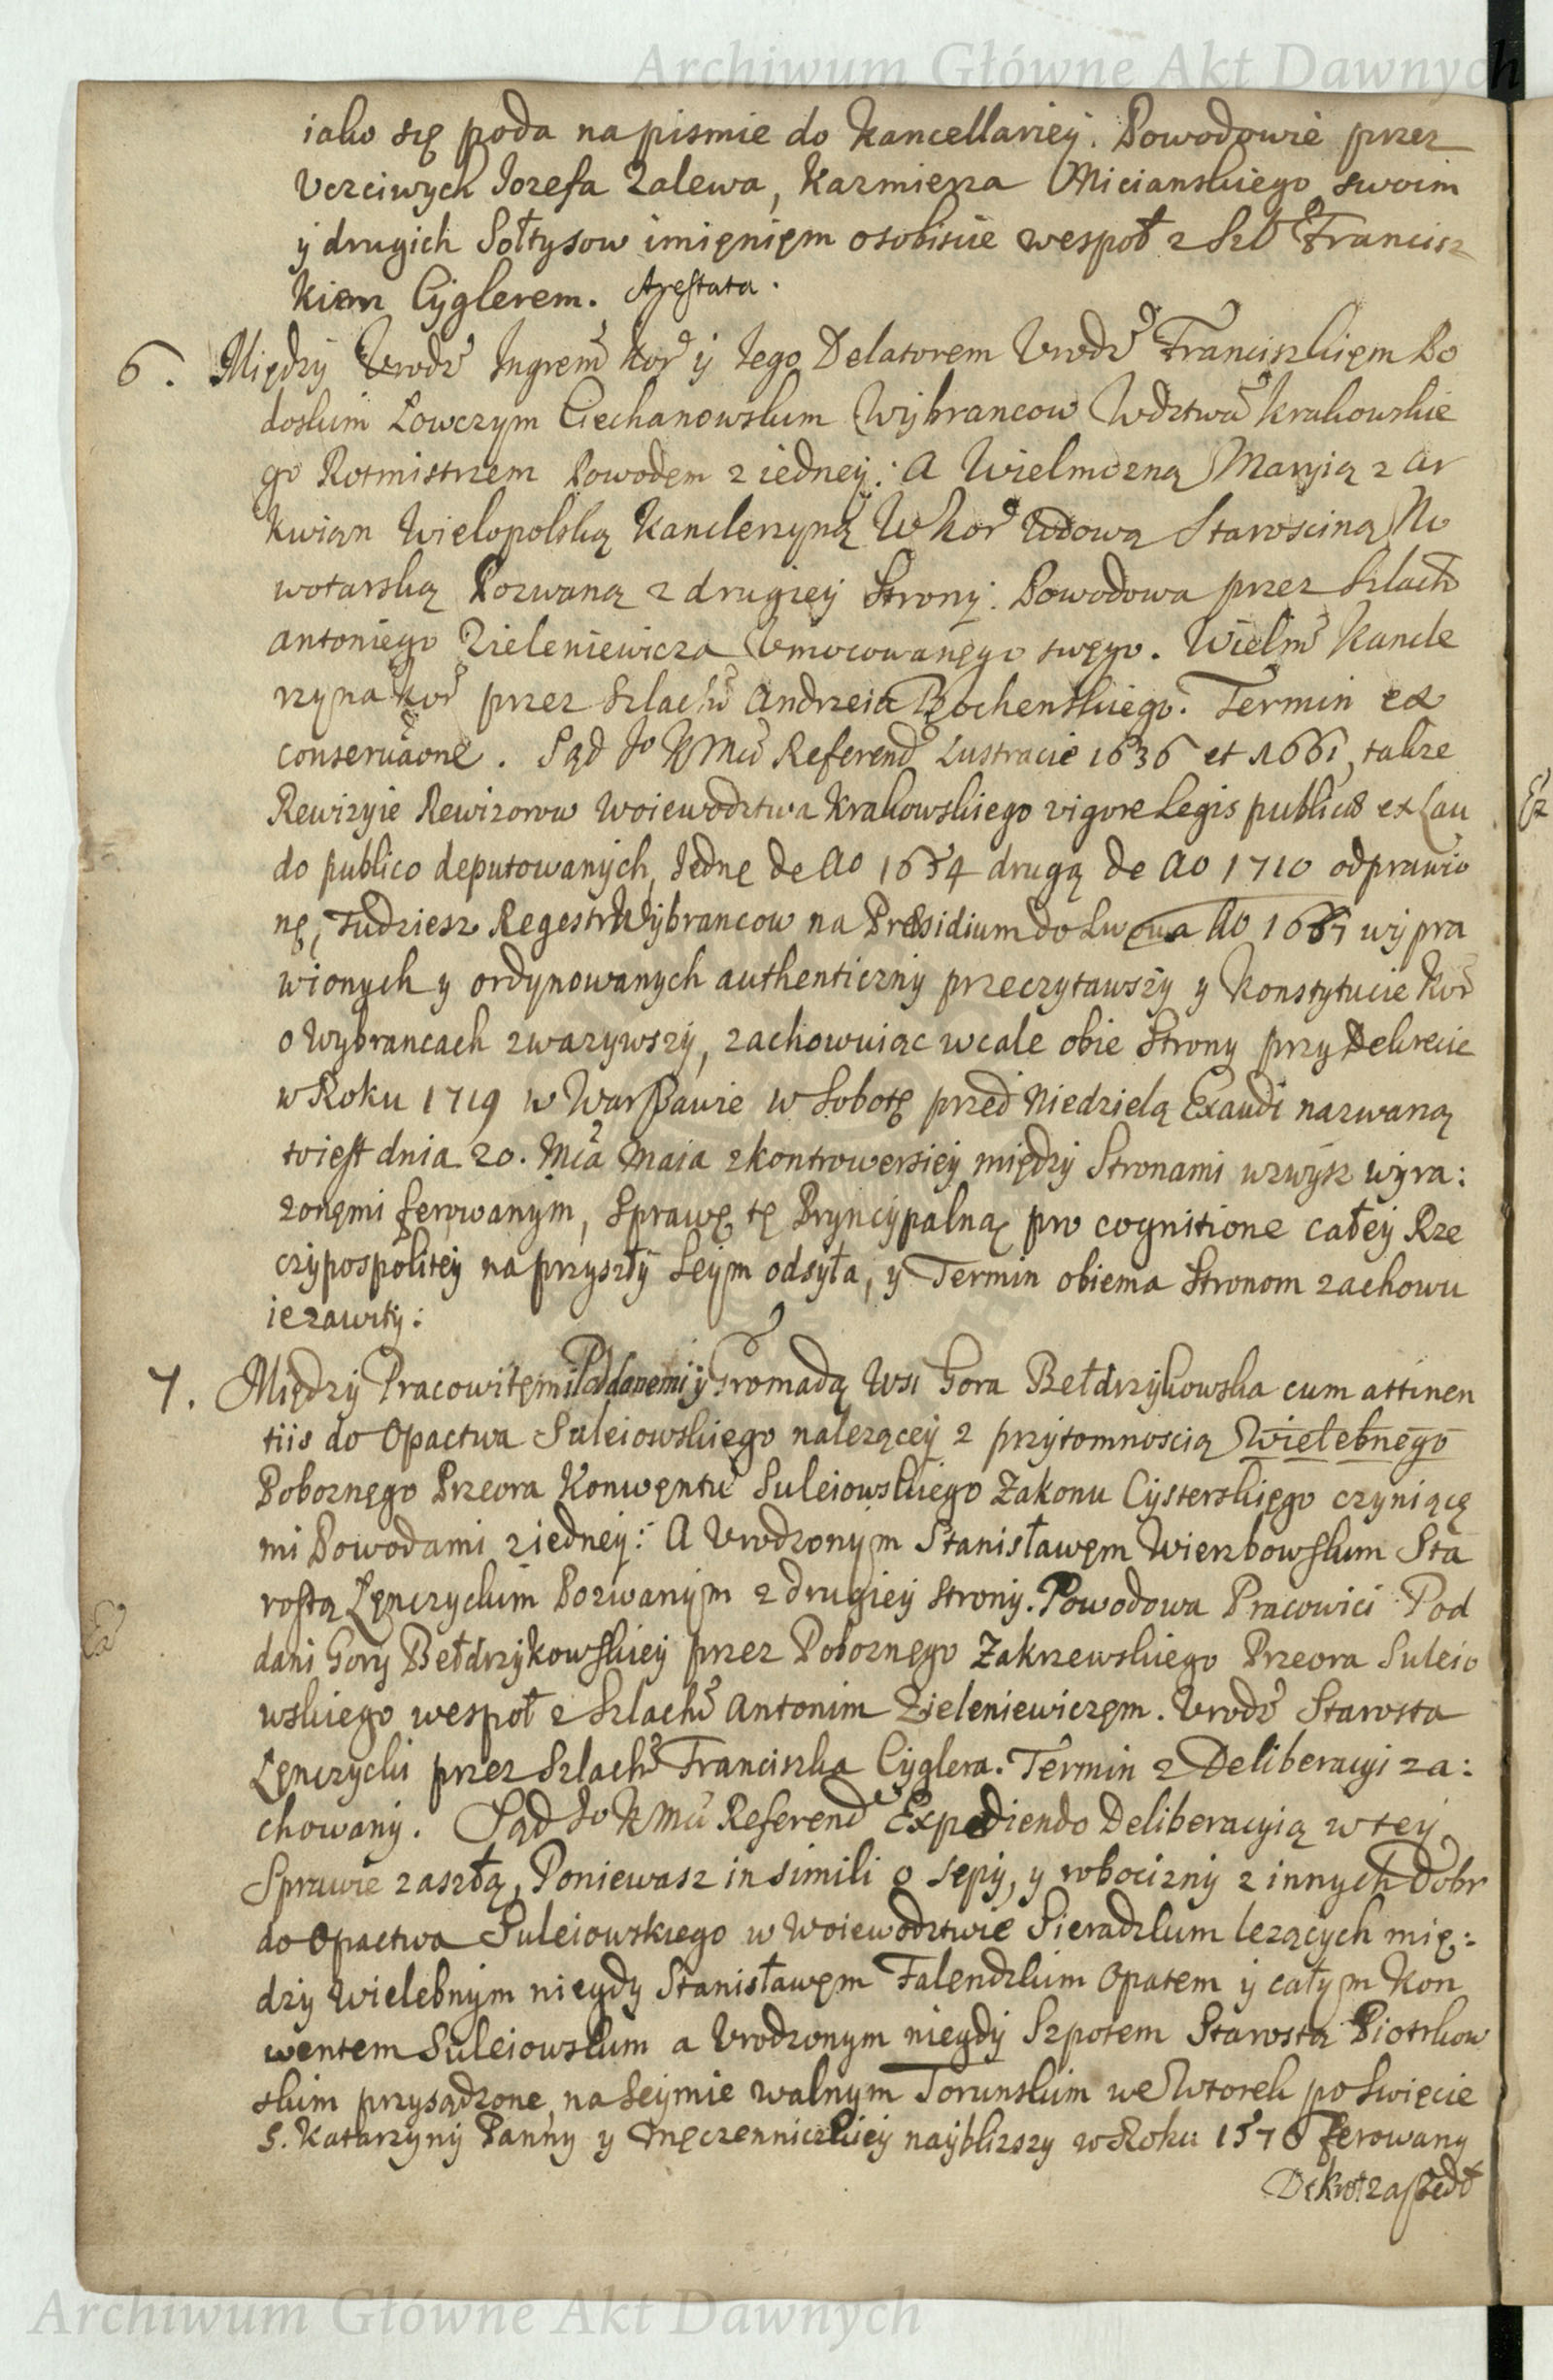 Archiwum Główne Akt Dawnych
iako się poda na pismie do Kancellariey. Powodowie przez
Uczciwych Iozefa Zalewa, Kazmierza Micianskiego swoim
y drugich Sołtysow imięnięm osobiscie wespoł z Szl Francisz
kiem Cyglerem. Attestata.
6. Między Urodz Ingrem Kor y Iego Delatorem Urodz Franciszkięm Bo
doskim Lowczym Ciechanowskim Wybrancow Wdztwa Krakowskie
go Rotmistrzem Powodem z iedney: A Wielmozną Maryią z ar
kwian Wielopolską Kanclerzyną W Kor Wdową Starosciną No
wotarską Pozwaną z drugiey Strony. Powodowa przez Szlach
antoniego Zieleniewicza Umocowanęgo swęgo. Wielm Kancle
rzyna Kor przez Szlach Andrzeia Bochenskiego. Termin ex
conseruaone. Sąd Io K Mci Referend Lustracie 1636 et 1661, takze
Rewizyie Rewizorow Woiewodztwa Krakowskiego vigore Legis publicæ ex Lau
do publico deputowanych, Iednę de Ao 1654 drugą de Ao 1710 odprawio
nę, Tudziesz Regestr Wybrancow na Præsidium do Lwowa Ao 1667 wypra
wionych y ordynowanych authenticzny przeczytawszy y Konstytucie Kor
o Wybrancach zwazywszy, zachowuiąc wcale obie Strony przy Dekrecie
w Roku 1719 w Warszawie w Sobotę przed Niedzielą Exaudi nazwaną
toiest dnia 20. Mca Maia z kontrowersiey między Stronami wzwysz wyra:
zonęmi ferowanym, Sprawę tę Pryncypalną pro cognitione całey Rze
czypospolitey na przyszły Seym odsyła, y Termin obiema Stronom zachowu
ie zawity:
7. Między Pracowitęmi Poddanemi y Gromadą Wsi Gora Bełdrzykowska cum attinen
tiis do Opactwa Suleiowskiego nalezącey z przytomnoscią Wielebnego
Poboznęgo Przeora Konwęntu Suleiowskiego Zakonu Cysterskięgo czyniącę
mi Powodami z iedney: A Urodzonym Stanisławęm Wierzbowskim Sta
rostą Lęnczyckim Pozwanym z drugiey Strony. Powodowa Pracowici Pod
dani Gory Bełdrzykowskiey przez Poboznęgo Zakrzewskiego Przeora Suleio
wskiego wespoł z Szlach Antonim Zieleniewiczęm. Urodz Starosta
Lęnczycki przez Szlach Franciszka Cyglera. Termin z Deliberacyi za:
chowany. Sąd Io K Mci Referend Expediendo Deliberacyią w tey
Sprawie zaszłą, Poniewasz in simili o sepy, y robocizny z innych Dobr
do Opactwa Suleiowskiego w Woiewodztwie Sieradzkim lezących mię:
dzy Wielebnym niegdy Stanisławęm Falendzkim Opatem y całym Kon
wentem Suleiowskim a Urodzonym niegdy Szpotem Starostą Piotrkow
skim przysądzone, na Seymie walnym Torunskim we Wtorek po Swięcie
S. Katarzyny Panny y Męczenniczkiey nayblizszy w Roku 1576 ferowany
Dekret zaszedł
Archiwum Główne Akt Dawnych